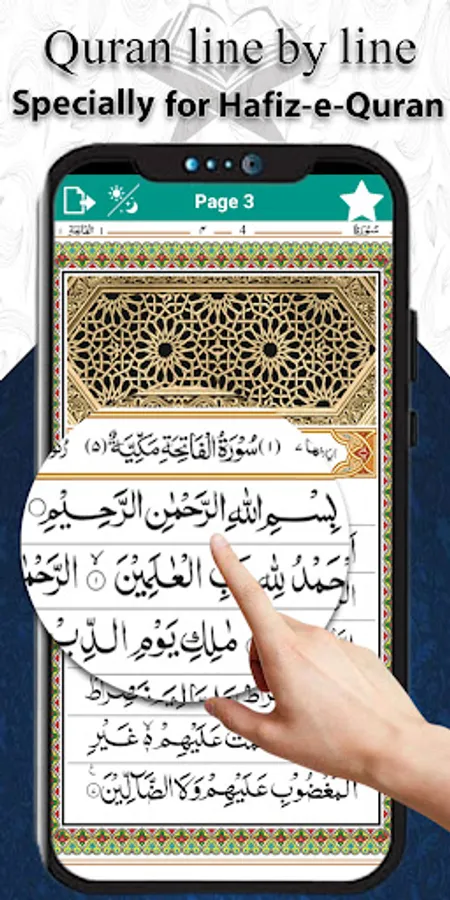 Quran line by line
Specially for Hafiz-e-Quran
Page 3
٣ 4
(١) سُوْرَةُ الْفَاتِحَةِ مَكِّيَّةٌ (٥)
بِسْمِ اللّٰهِ الرَّحْمٰنِ الرَّحِيْمِ
حَمْدُ لِلّٰهِ رَبِّ الْعٰلَمِيْنَ ١ الرَّحْمٰ
مٰلِكِ يَوْمِ الدِّيْ
عَلَيْهِمْ غَيْرِ
الْمَغْضُوْبِ عَلَيْهِمْ وَلَا الضَّآلِّيْنَ